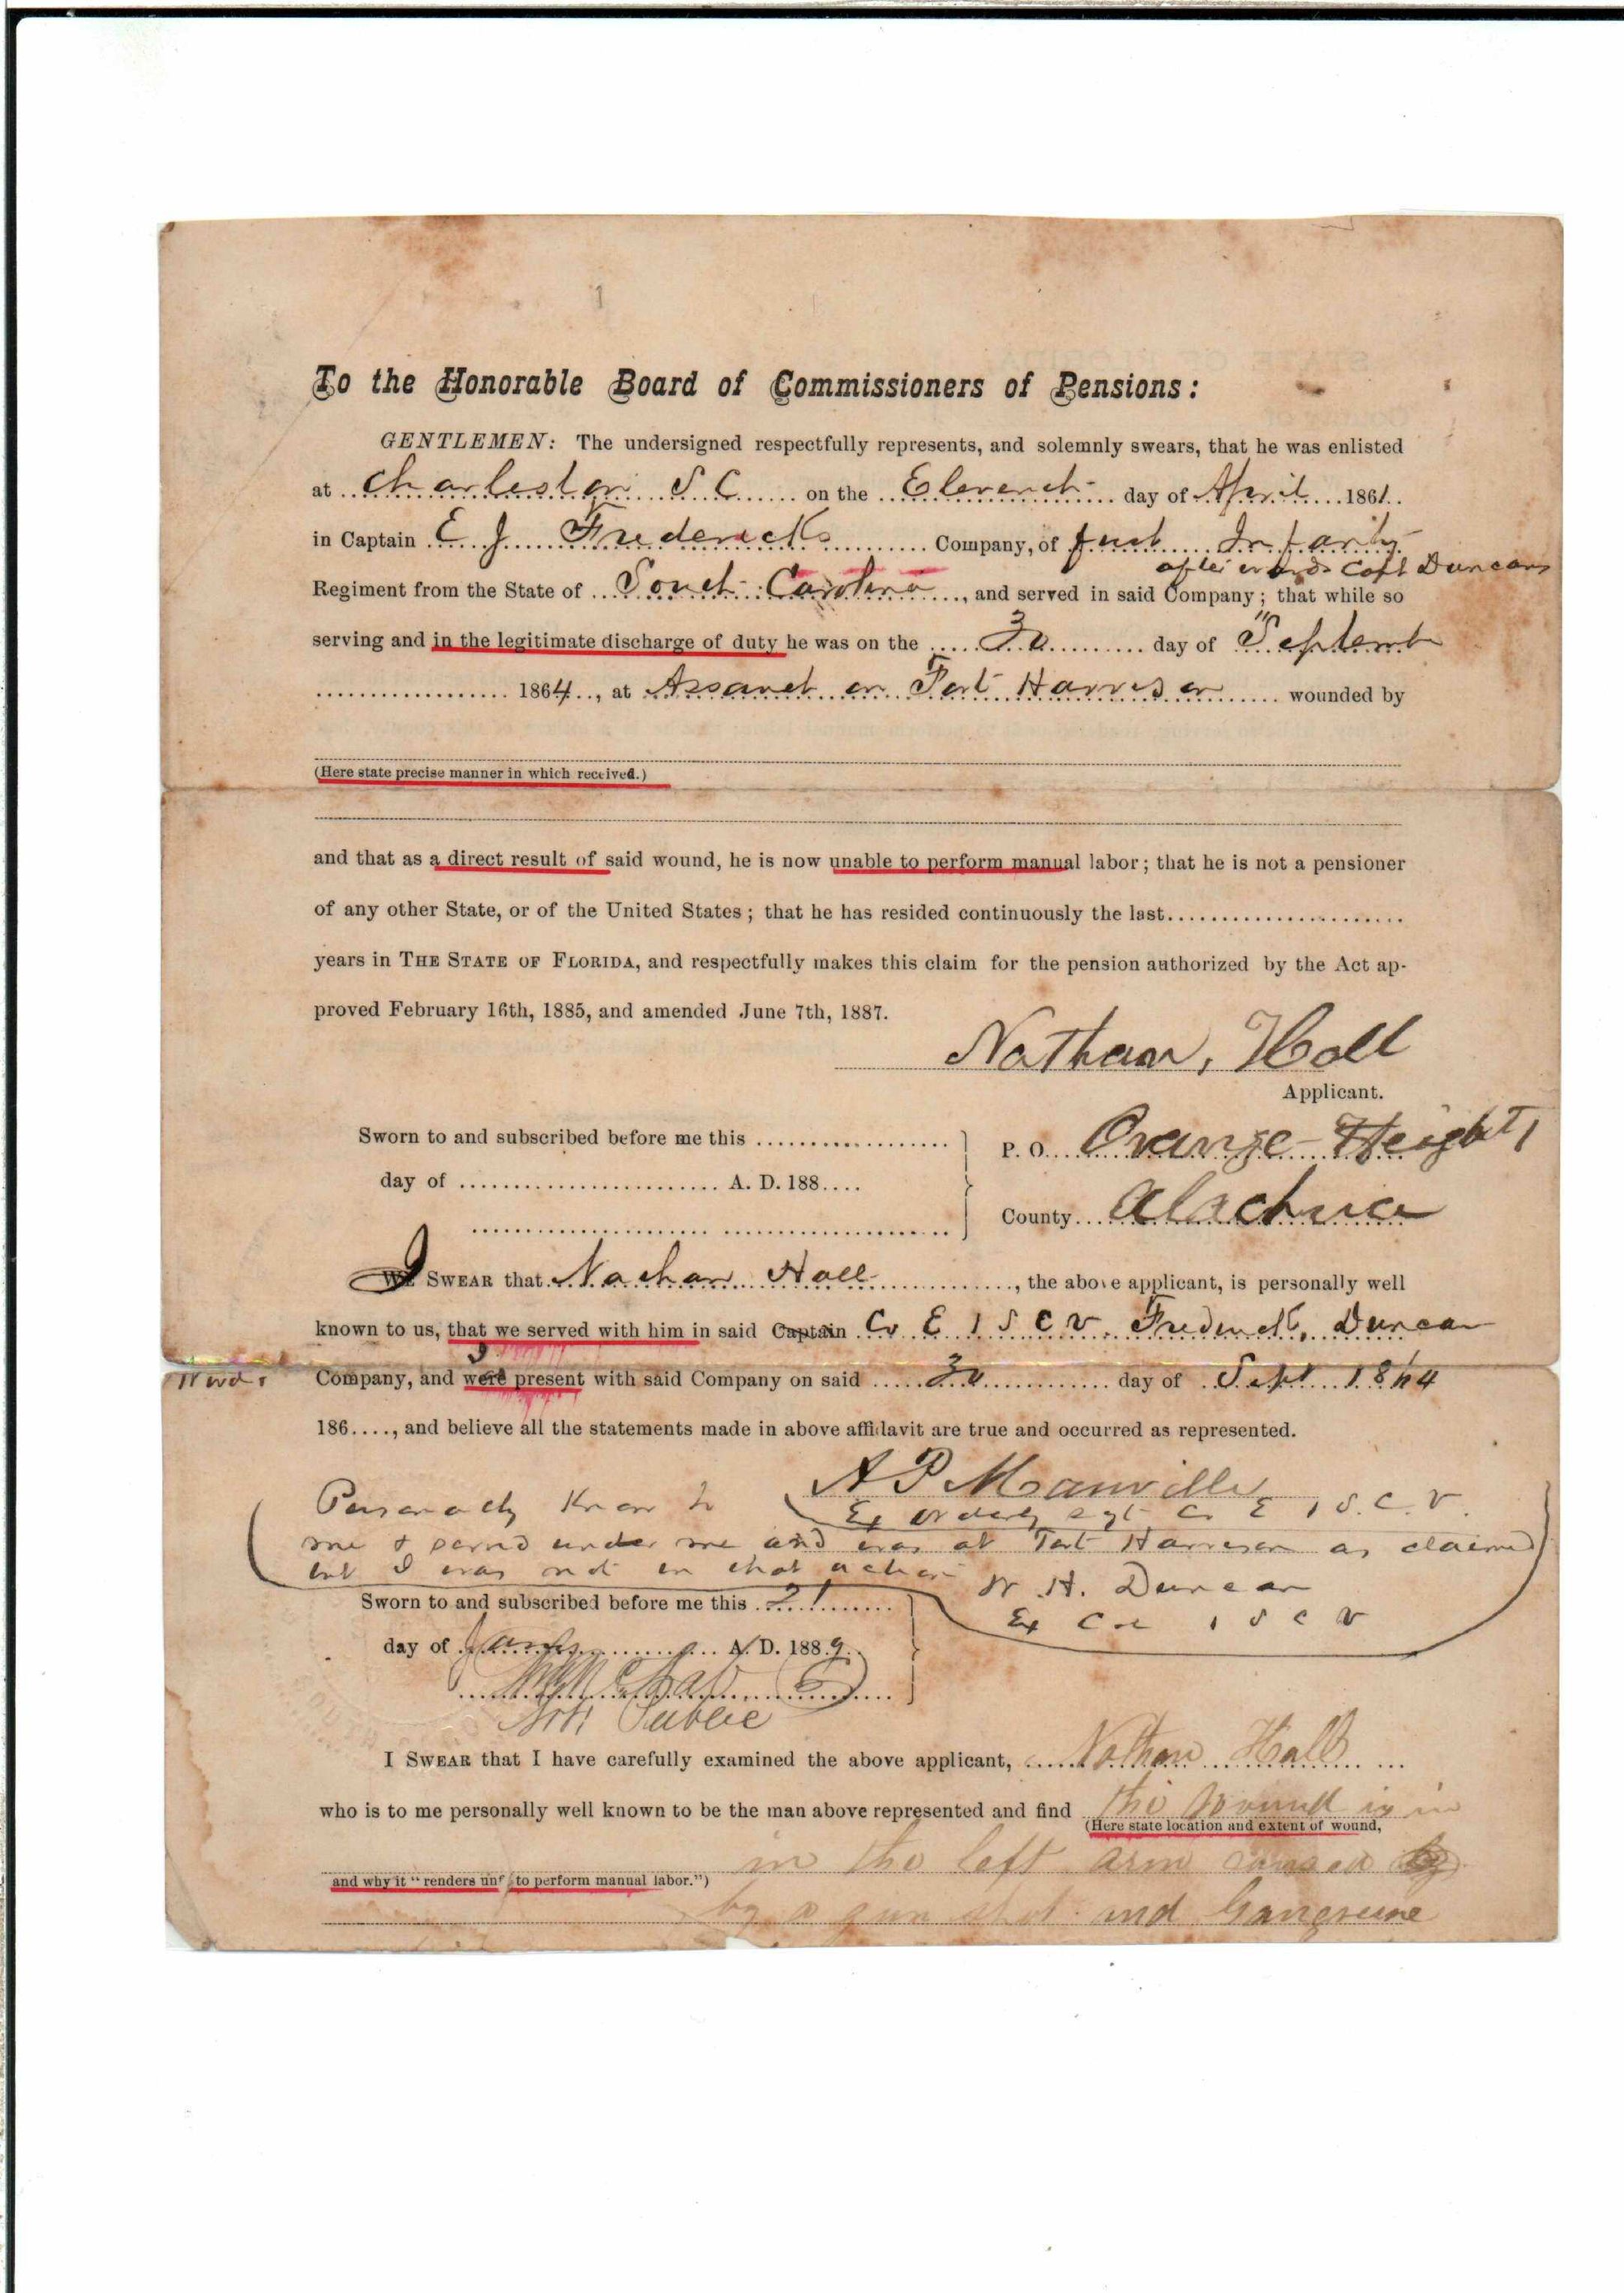 To the Honorable Board of Commissioners of Pensions:
GENTLEMEN: The undersigned respectfully represents, and solemnly swears, that he was enlisted
at Charleston S. C. on the Elevent day of April 1861
in Captain E J Fredericks Company, of Infantry
afterwards Capt Duncans
Regiment from the State of South Carolina, and served in said Company; that while so
serving and in the legitimate discharge of duty he was on the 30 day of Septemb
1864, at Assault on Fort Harrison wounded by
(Here state precise manner in which received.)
and that as a direct result of said wound, he is now unable to perform manual labor; that he is not a pensioner
of any other State, or of the United States; that he has resided continuously the last
years in THE STATE OF FLORIDA, and respectfully makes this claim for the pension authorized by the Act ap-
proved February 16th, 1885, and amended June 7th, 1887.
Nathan, Holl
Applicant.
Sworn to and subscribed before me this
P. O. Orange Heights
day of A. D. 188
County Alachua
I SWEAR that Nathan Hall, the above applicant, is personally well
known to us, that we served with him in said Captain Co E 1 S C V Frederick, Duncan
Company, and were present with said Company on said 30 day of Sept 1864
186, and believe all the statements made in above affidavit are true and occurred as represented.
A P Manville
Personally Known to Ex Orderly Sgt Co E 1 S. C. V.
me & served under me and was at Fort Harrison as claimed
but I was not in that action
W. H. Duncan
Sworn to and subscribed before me this 21
Ex Col 1 S C V
day of A. D. 1889
Public
I SWEAR that I have carefully examined the above applicant, Nathan Hall
who is to me personally well known to be the man above represented and find the wound is in
(Here state location and extent of wound,
in the left arm caused by
and why it "renders unf to perform manual labor.")
by a gun shot and Gangreene